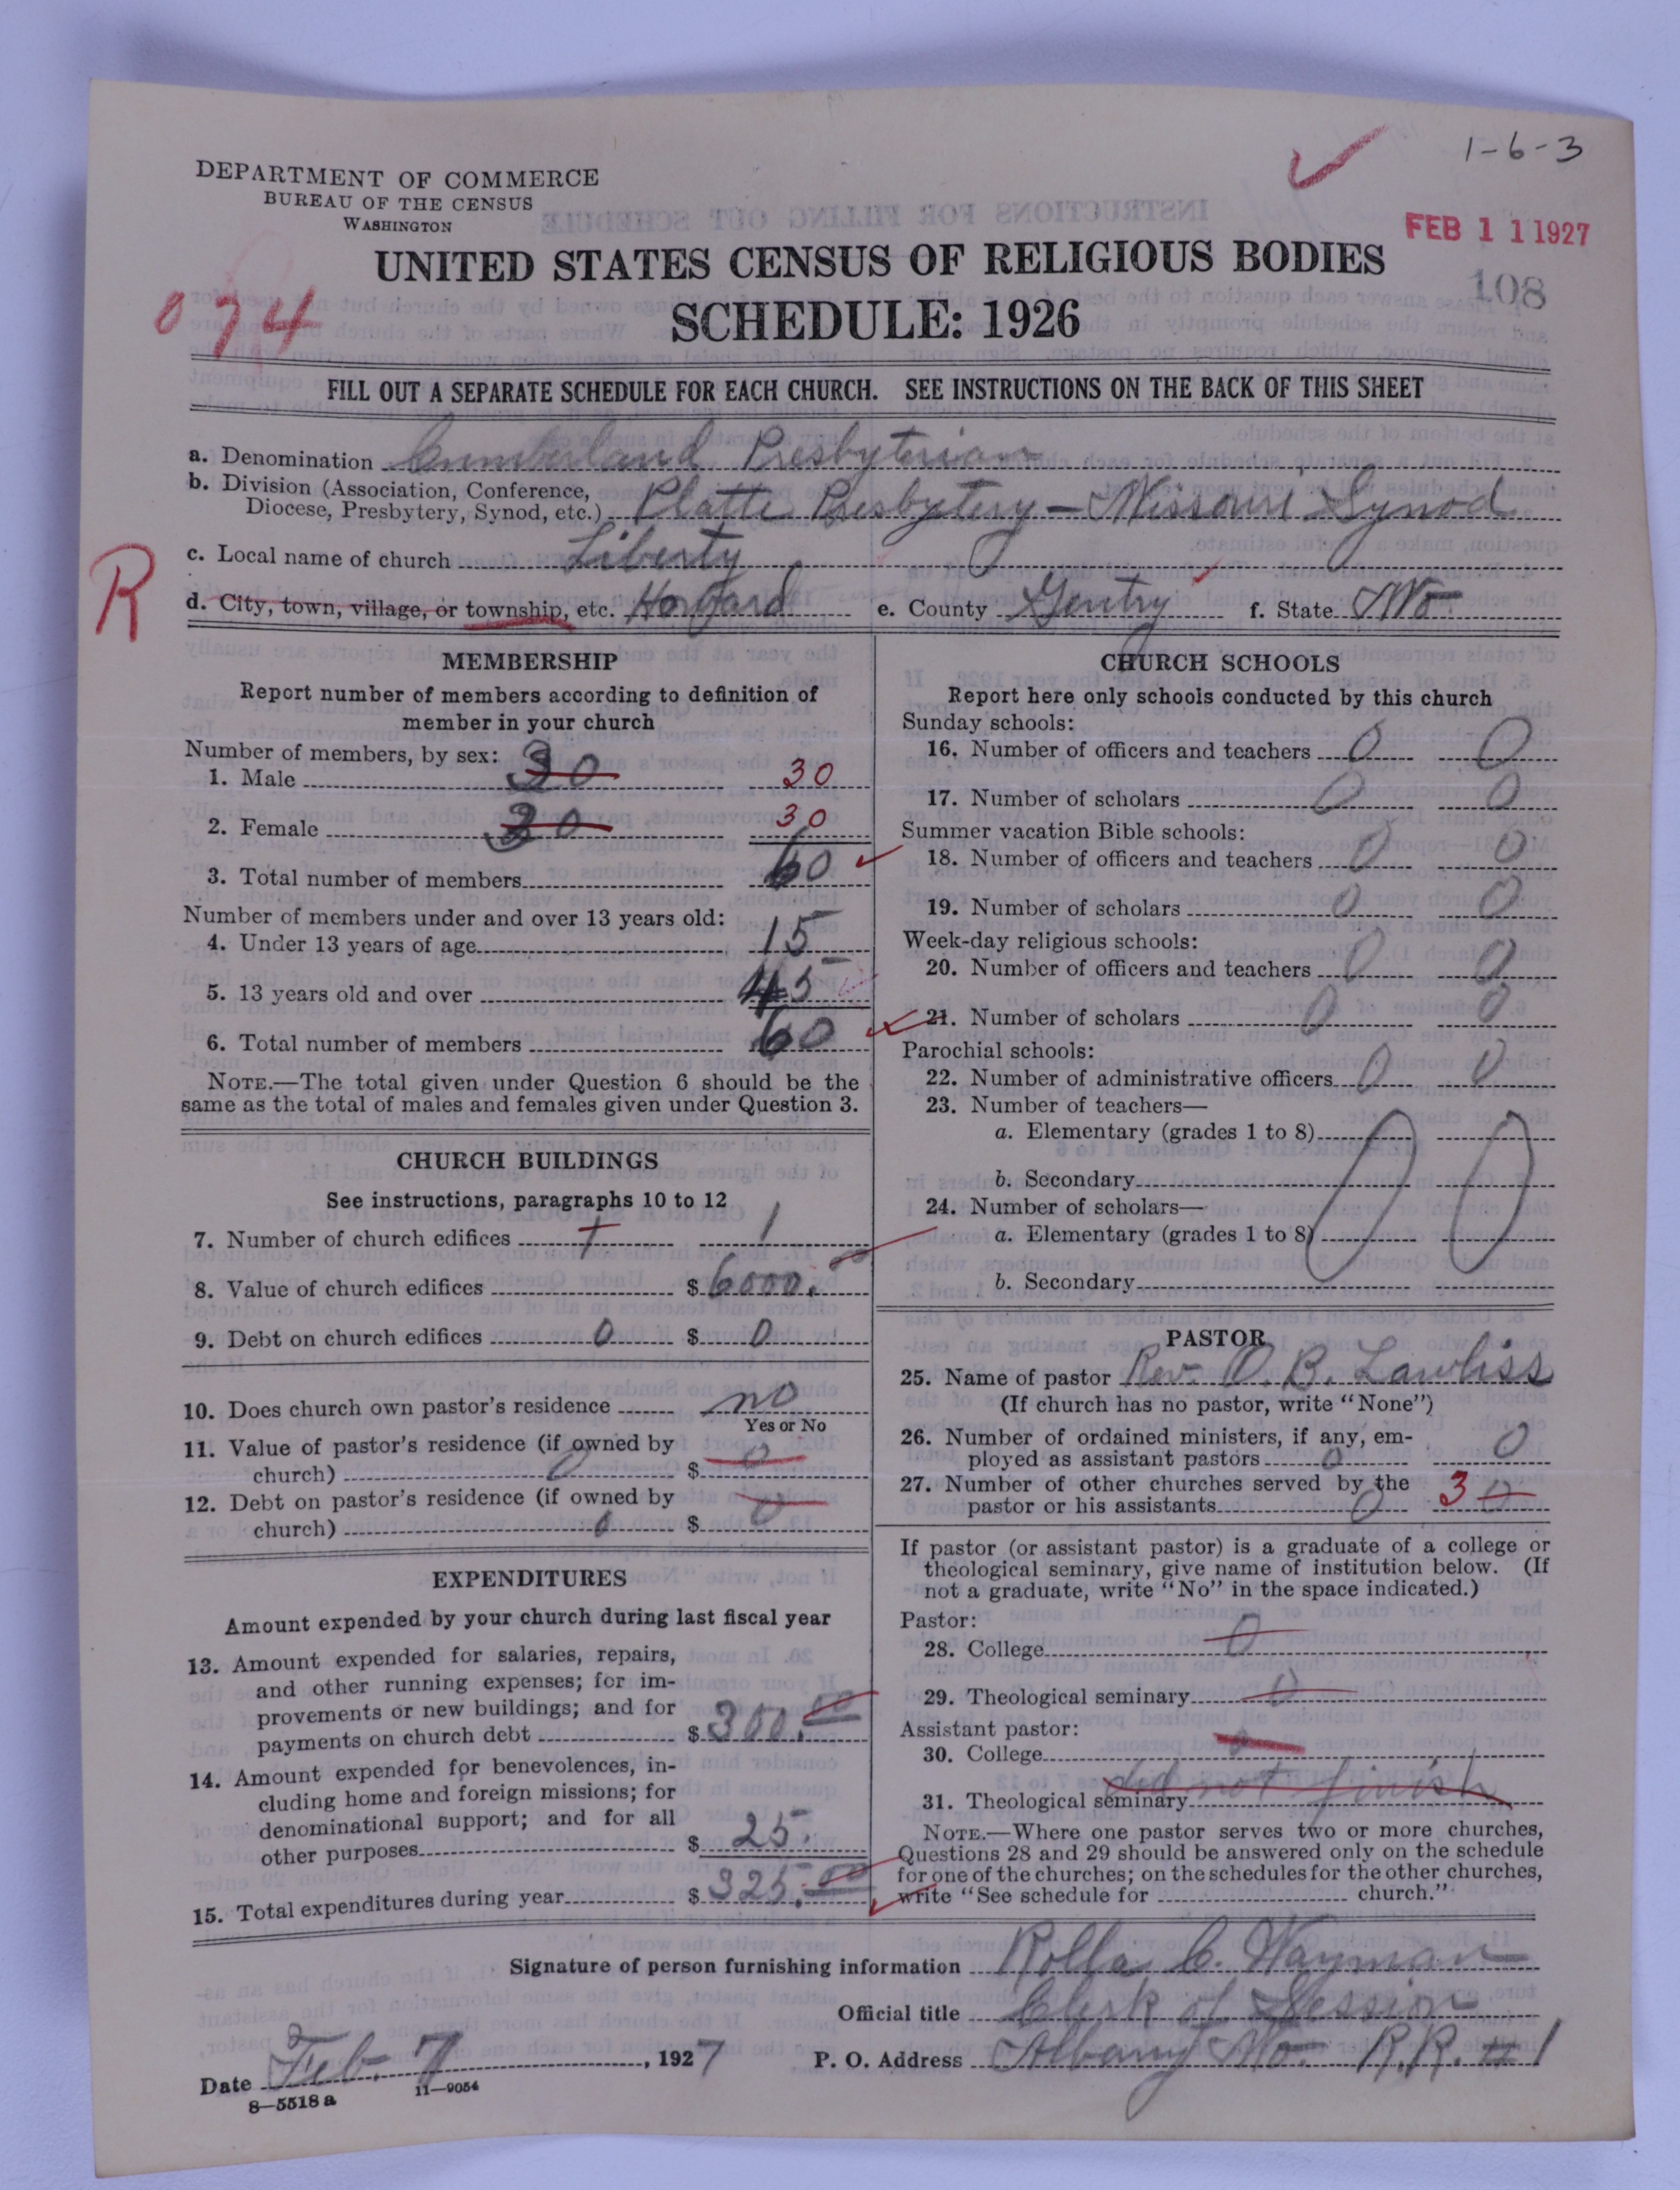 1-6-3
DEPARTMENT OF COMMERCE
BUREAU OF THE CENSUS
WASHINGTON
FEB 11 1927
UNITED STATES CENSUS OF RELIGIOUS BODIES
108
074
SCHEDULE: 1926
FILL OUT A SEPARATE SCHEDULE FOR EACH CHURCH. SEE INSTRUCTIONS ON THE BACK OF THIS SHEET
a. Denomination Cumberland Presbyterian
b. Division (Association, Conference,
Diocese, Presbytery, Synod, etc.) Platte Presbytery - Missouri Synod
R
c. Local name of church Liberty
d. City, town, village, or township, etc. e. County Gentry f. State Mo
MEMBERSHIP
Report number of members according to definition of
member in your church
Number of members, by sex:
1. Male 30 30
2. Female 30 30
3. Total number of members 60
Number of members under and over 13 years old:
4. Under 13 years of age 15
5. 13 years old and over 45
6. Total number of members 60
NOTE.—The total given under Question 6 should be the
same as the total of males and females given under Question 3.
CHURCH BUILDINGS
See instructions, paragraphs 10 to 12
7. Number of church edifices 1 1
8. Value of church edifices $ 6000.00
9. Debt on church edifices 0 $ 0
10. Does church own pastor's residence no
Yes or No
11. Value of pastor's residence (if owned by
church) 0 $ 0
12. Debt on pastor's residence (if owned by
church) 0 $ 0
EXPENDITURES
Amount expended by your church during last fiscal year
13. Amount expended for salaries, repairs,
and other running expenses; for im-
provements or new buildings; and for
payments on church debt $ 300.00
14. Amount expended for benevolences, in-
cluding home and foreign missions; for
denominational support; and for all
other purposes $ 25.
15. Total expenditures during year $ 325.00
CHURCH SCHOOLS
Report here only schools conducted by this church
Sunday schools:
16. Number of officers and teachers 0 0
17. Number of scholars 0 0
Summer vacation Bible schools:
18. Number of officers and teachers 0 0
19. Number of scholars 0 0
Week-day religious schools:
20. Number of officers and teachers 0 0
21. Number of scholars 0 0
Parochial schools:
22. Number of administrative officers 0 0
23. Number of teachers—
a. Elementary (grades 1 to 8) 0 0
b. Secondary
24. Number of scholars—
a. Elementary (grades 1 to 8)
b. Secondary
PASTOR
25. Name of pastor Rev. O. B. Lawliss
(If church has no pastor, write "None")
26. Number of ordained ministers, if any, em-
ployed as assistant pastors 0 0
27. Number of other churches served by the
pastor or his assistants 0 3 0
If pastor (or assistant pastor) is a graduate of a college or
theological seminary, give name of institution below. (If
not a graduate, write "No" in the space indicated.)
Pastor:
28. College 0
29. Theological seminary 0
Assistant pastor:
30. College 0
did not finish
31. Theological seminary
NOTE.—Where one pastor serves two or more churches,
Questions 28 and 29 should be answered only on the schedule
for one of the churches; on the schedules for the other churches,
write "See schedule for church."
Signature of person furnishing information Rolla C. Wayman
Official title Clerk of Session
Date Feb. 7, 1927 P. O. Address Albany Mo. R.R. #1
8—5518 a 11—9054